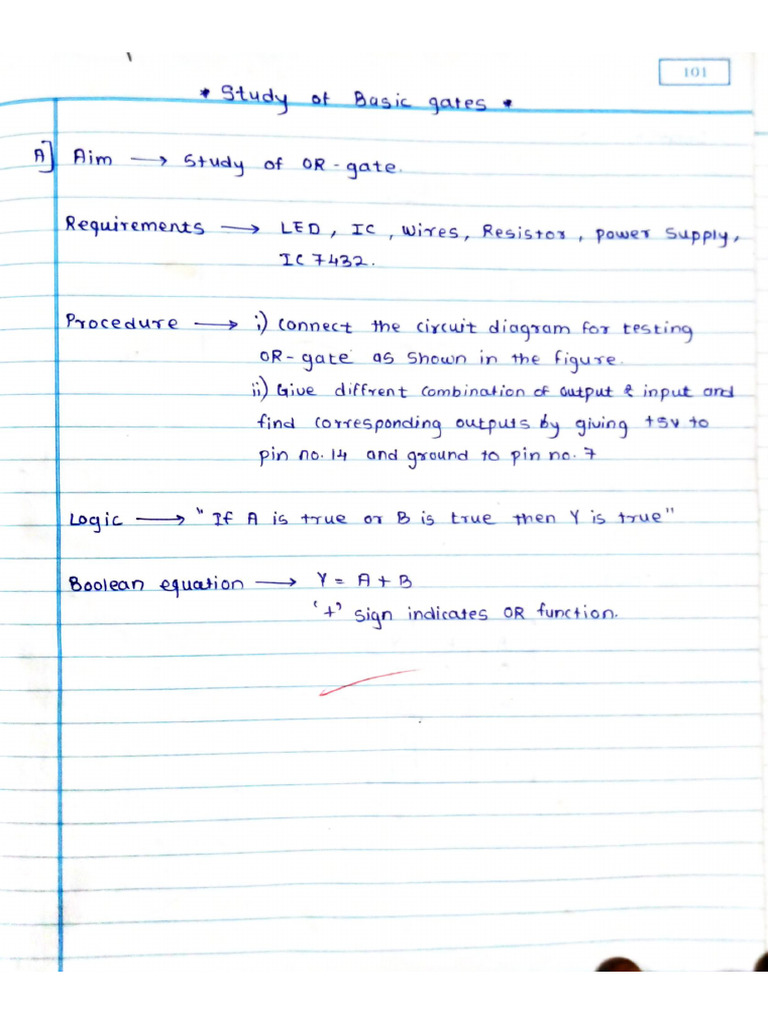 101
* Study of Basic gates *
A] Aim → Study of OR-gate.
Requirements → LED, IC, wires, Resistor, power supply,
IC 7432.
Procedure → i) connect the circuit diagram for testing
OR-gate as shown in the figure.
ii) Give diffrent combination of output & input and
find corresponding outputs by giving +5v to
pin no. 14 and ground to pin no. 7
Logic → "If A is true or B is true then Y is true"
Boolean equation → Y = A + B
'+' sign indicates OR function.